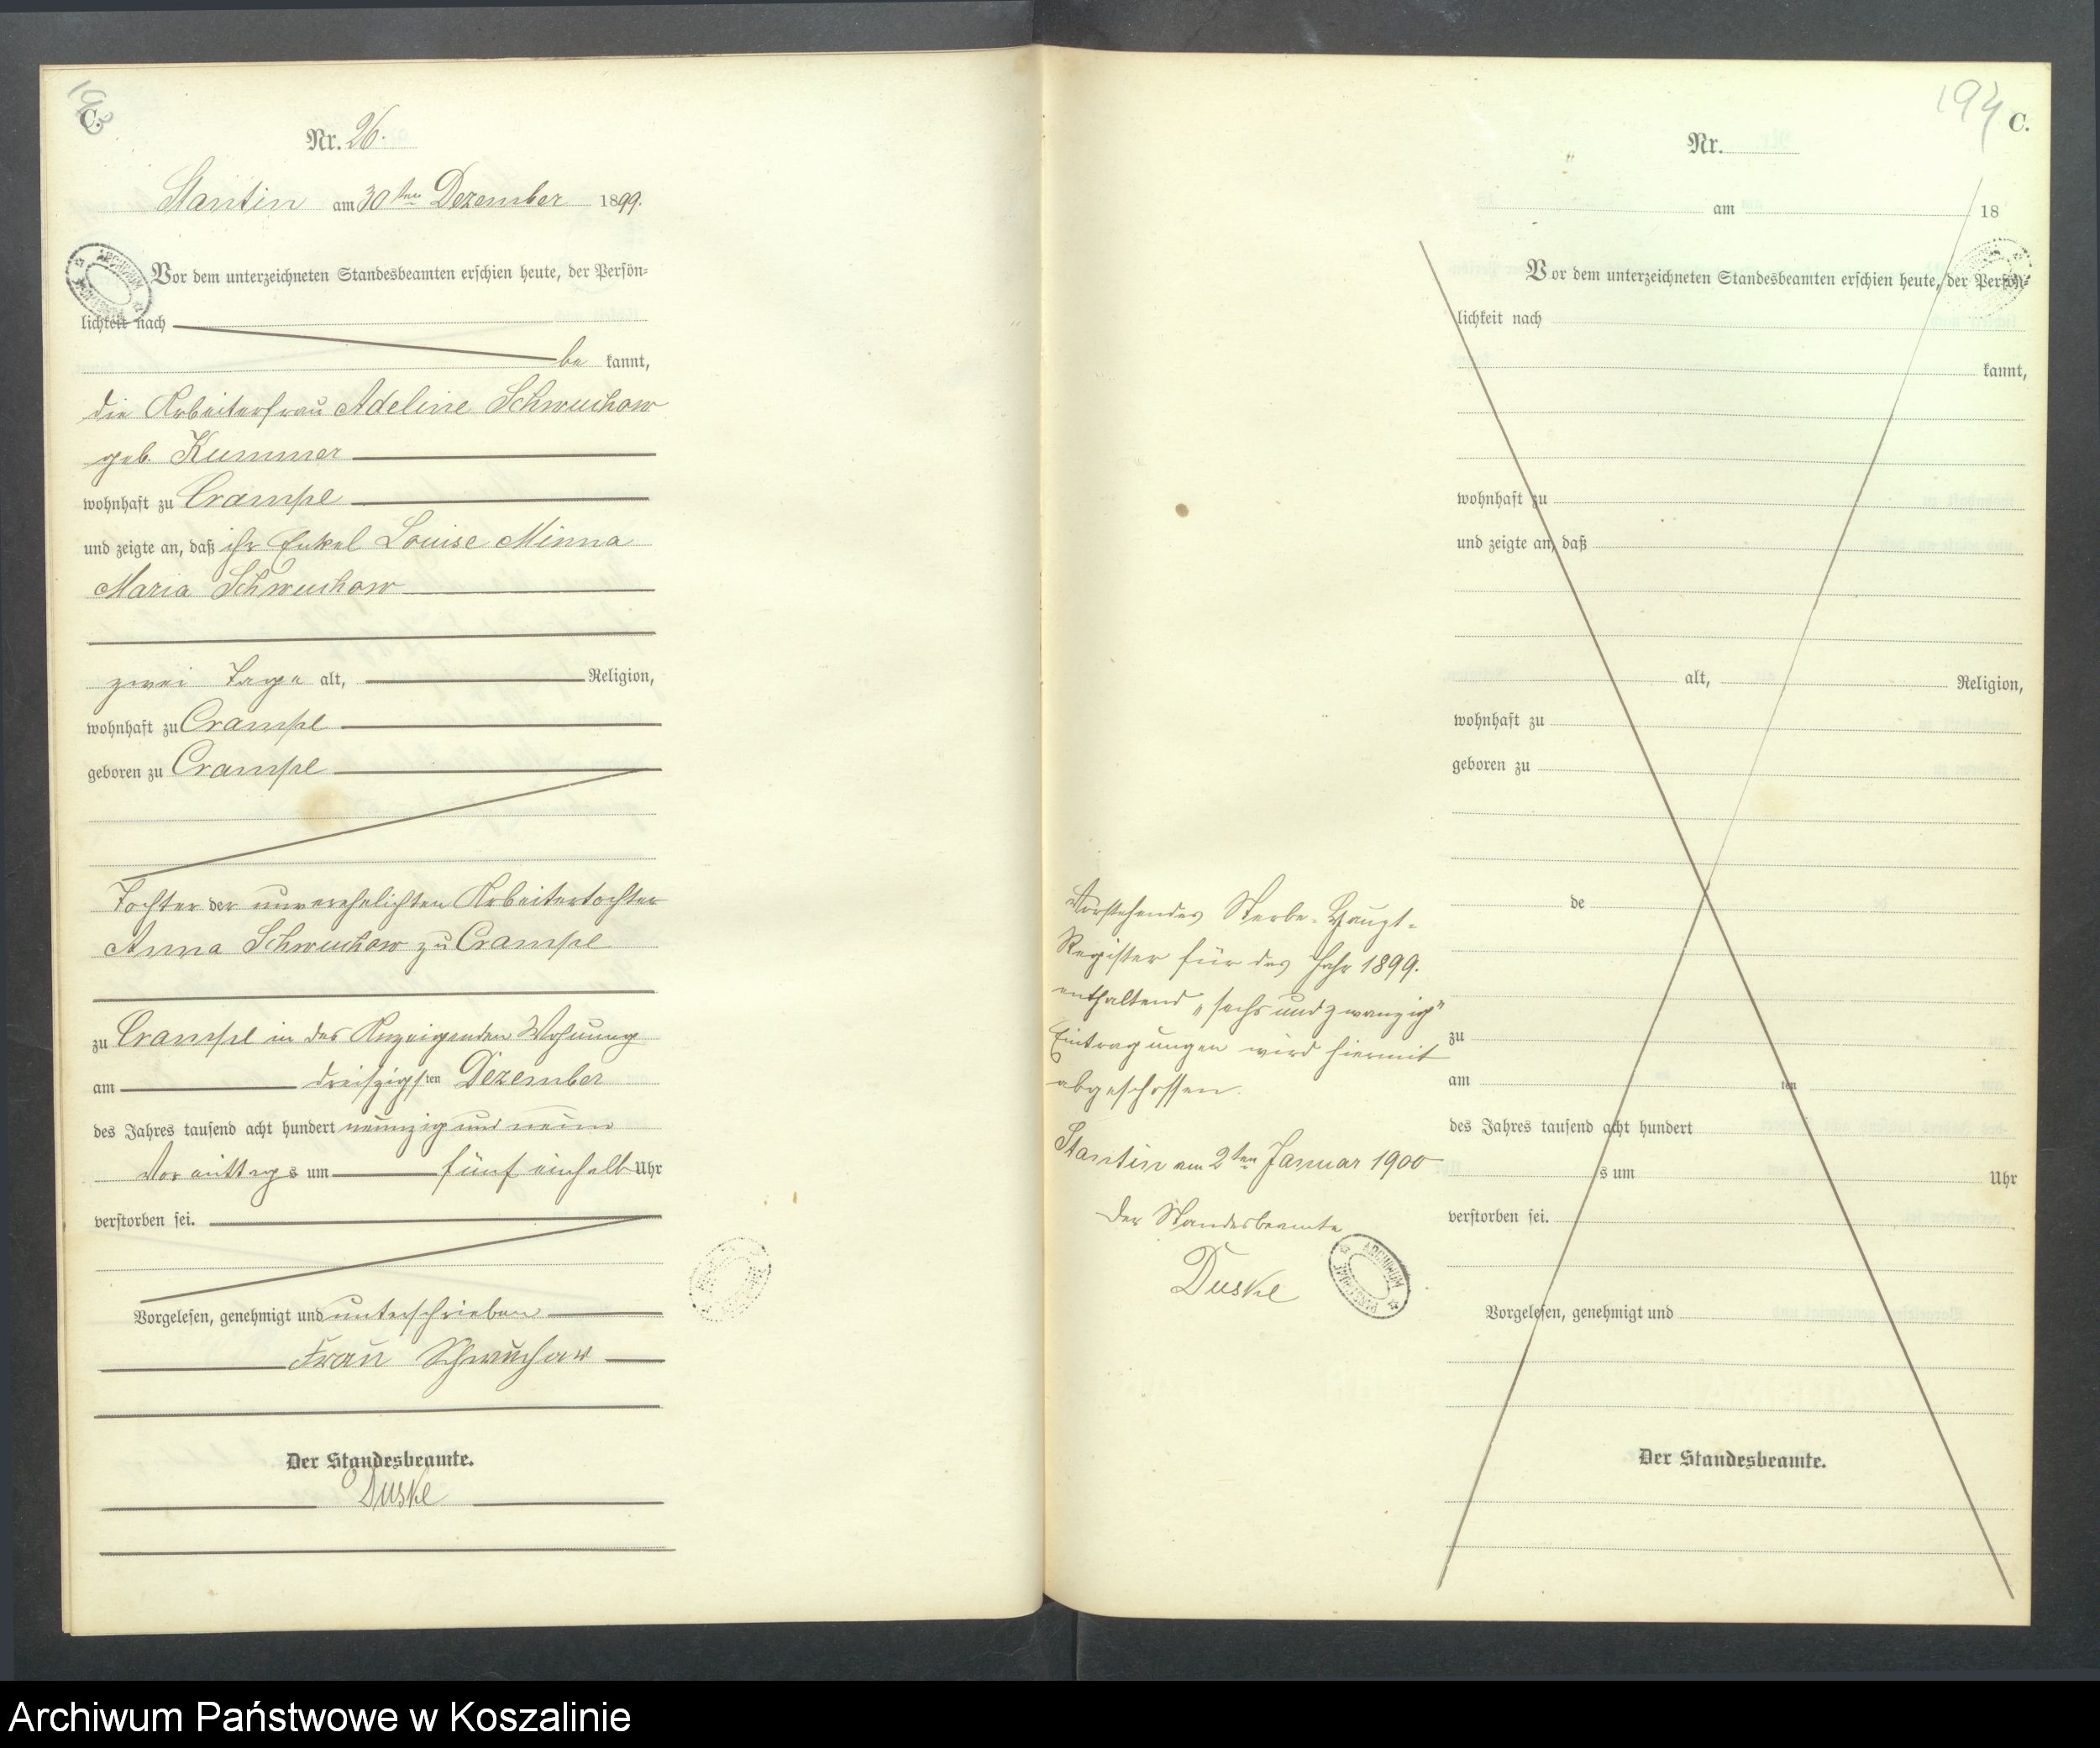 C.
Nr. 26.
Stantin am 30ten Dezember 1899.
Vor dem unterzeichneten Standesbeamten erschien heute, der Persön-
lichkeit nach
be kannt,
die Arbeiterfrau Adeline Schwuchow
geb. Kummer
wohnhaft zu Crampe
und zeigte an, daß ihr Enkel Louise Minna
Maria Schwuchow
zwei Tage alt, Religion,
wohnhaft zu Crampe
geboren zu Crampe
Tochter der unverehelichten Arbeitertochter
Anna Schwuchow zu Crampe
zu Crampe in der Anzeigenden Wohnung
am dreißigsten Dezember
des Jahres tausend acht hundert neunzig und neun
Vormittags um fünf einhalb Uhr
verstorben sei.
Vorgelesen, genehmigt und unterschrieben
Frau Schwuchow
Der Standesbeamte.
Duske
194 C.
Nr.
am 18
Vor dem unterzeichneten Standesbeamten erschien heute, der Persön-
lichkeit nach
kannt,
wohnhaft zu
und zeigte an, daß
alt, Religion,
wohnhaft zu
geboren zu
de
zu
am ten
des Jahres tausend acht hundert
s um Uhr
verstorben sei.
Vorgelesen, genehmigt und
Der Standesbeamte.
Vorstehendes Sterbe-Haupt-
Register für das Jahr 1899.
enthaltend „sechsundzwanzig"
Eintragungen wird hiermit
abgeschlossen.
Stantin am 2ten Januar 1900
Der Standesbeamte
Duske
ARCHIWUM
Archiwum Państwowe w Koszalinie